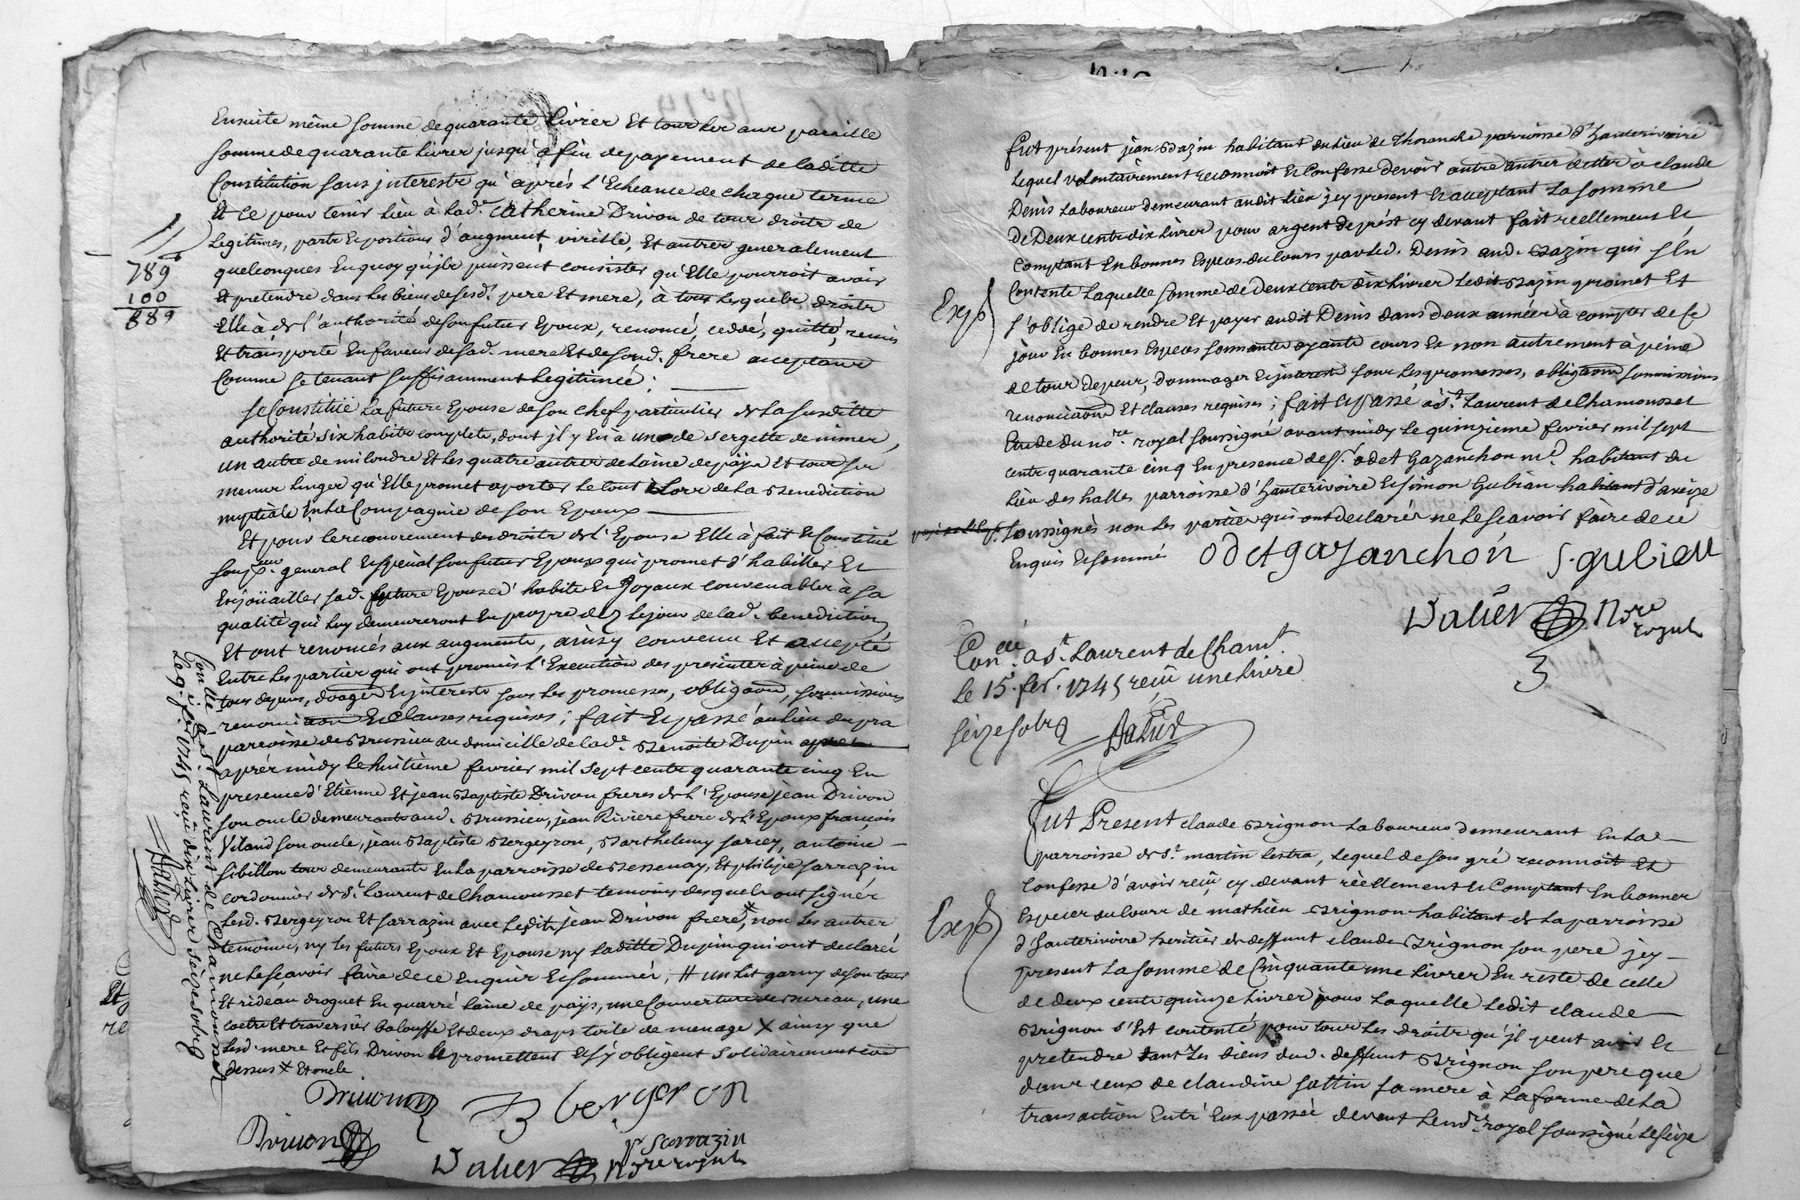 Ensuite même somme de quarante Livres Et tous les ans pareille
somme de quarante Livres jusqu'a fin de payement de laditte
Constitution sans jnterestz qu'aprés l'Echeance de chaque terme
Et ce pour tenir Lieu à lad.e Catherine Drivon de tous droits de
Legitimes, parts Et portions d'augment, virille, Et autres generalement
quelconques En quoy qu'jls puissent consister qu'Elle pourroit avoir
Et pretendre dans Les biens de sesd.s pere Et mere, à tous Lesquels droits
Elle à de l'authorité de son futur Epoux, renoncé, ceddé, quitté, remis
Et transporté En faveur de sad. mere Et de sond. frere acceptant
Comme se tenant suffisamment Legitimée;
789
100
889
se Constituë La future Epouse de son Chef particulier de La susditte
authorité six habits complets, dont jl y En à un de sergette de nimes,
un autre de miloudre Et Les quatre autres de Laine de païs Et tous ses
menus Linges qu'Elle promet aporter Le tout Lors de La Benediction
nuptiale En la Compagnie de son Epoux
Et pour Le recouvrement des droits de l'Epouse Elle à fait Et Constitué
son p.eur general Et special son futur Epoux qui promet d'habiller Et
Enjoüailler sad. future Epouse d'habits Et Joyaux convenables à sa
qualité qui Luy demeureront En propre dez Le jour de lad. benediction
Et ont renoncés aux augments, ainsy convenu Et accepté
Entre Les parties qui ont promis l'Execution des presentes à peine de
tous depens, Et jnterests sous Les promesses, obligaons, soumissions
renonciaons Et Clauses requises; fait Et passé au Lieu du pra
parroisse de Brussieu au domicille de lad.e Benoite Dupin
aprés midy Le huitième fevrier mil sept cents quarante cinq En
presence d'Etienne Et jean Baptiste Drivon freres de l'Epouse jean Drivon
son oncle demeurants aud. Brussieu, jean Riviere frere de l'Epoux françois
Viland son oncle, jean Baptiste Bergeyron, Barthelemy jarcey, antoine
sibillon tous demeurants En La parroisse de Bessenay, Et philipe sarrazin
cordonnier de S.t Laurent de Chamousset temoins desquels ont signés
Lesd. Bergeyron Et sarrazin avec Ledit jean Drivon frere, x non Les autres
temoins, ny Les futurs Epoux Et Epouse ny Laditte Dupin qui ont declaré
ne Le sçavoir faire de ce Enquis Et sommés, # un Lit garny de son tour
Et rideau droguet En quarré Laine de païs, une Couverture de Bureau, une
coetre Et traversier balouffe Et deux draps toile de menage x ainsy que
Lesd. mere Et fils Drivon Le promettent Et s'y obligent solidairement
dessus x Et oncle
Con.llé a S.t Laurent de Chamousset
Le 9 fev. 1745 reçû dix Livres seize sols
Dalier
Drivon
Bergeron
Drivon
p sarrazin
Dalier N.re royal
Et
re
Fut présent jean Bazin habitant du lieu de Thoranche parroisse d'hauterivoire
Lequel volontairement reconnoit Et Confesse devoir outre autres dettes à claude
Denis Laboureur demeurant audit Lieu jcy present Et acceptant La somme
de Deux cents dix Livres pour argent de prést cy devant fait reellement Et
Comptant En bonnes Especes du Cours par led. Denis aud. Bazin qui s'En
Contente Laquelle somme de deux cents dix Livres Ledit Bazin promet Et
s'oblige de rendre Et payer audit Denis dans deux années à compter de ce
jour En bonnes Especes sonnantes ayants cours Et non autrement à peine
de tous depens, dommages Et jnterests sous Les promesses, obligaons soumissions
renonciaons Et clauses requises; fait Et passé à S.t Laurent de Chamousset
Etude du no.re royal soussigné avant midy Le quinzieme fevrier mil sept
cents quarante cinq En presence de s.r odet Gazanchon m.d habitant du
Lieu des halles parroisse d'hauterivoire Et simon Gubian habitant d'aveize
soussignés non Les parties qui ont declarés ne Le sçavoir faire de ce
Enquis Et sommé
Exp)
odet gazanchon s. gubian
Dalier N.re royal
3
Con.llé a S.t Laurent de Cham.t
Le 15.e fev. 1745 reçû une Livre
seize sols
Dalier
Fut Present claude Brignon Laboureur demeurant En La
parroisse de S.t martin Lestra, Lequel de son gré reconnoit Et
Confesse d'avoir reçû cy devant réellement Et Comptant En bonnes
Especes du Cours de mathieu Brignon habitant de La parroisse
d'hauterivoire heritier de deffunt claude Brignon son pere jcy
present La somme de Cinquante une Livres En reste de celle
de deux cents quinze Livres pour Laquelle Ledit claude
Brignon s'Est contenté pour tous Les droits qu'jl peut avoir Et
pretendre tant Ez biens dud. deffunt Brignon son pere que
dans ceux de claudine sattin sa mere à La forme de La
transaction Entr'Eux passée devant Le no.re royal soussigné Le seize
Exp)